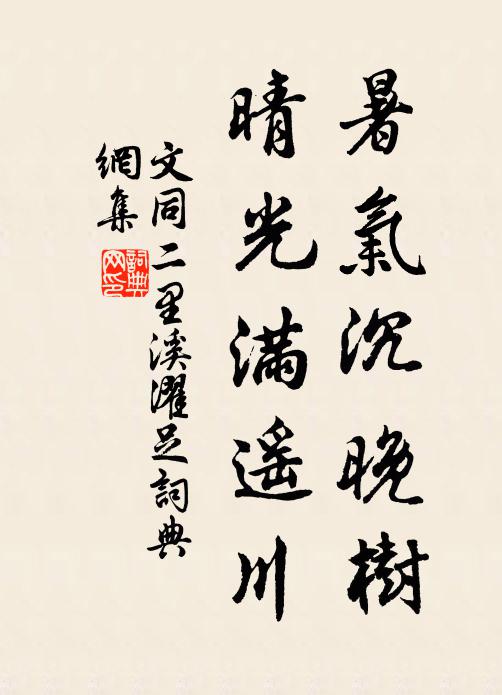 暑氣沉晚樹
晴光滿遥川
文同二里溪濯足詞典
網集
詞典
网印